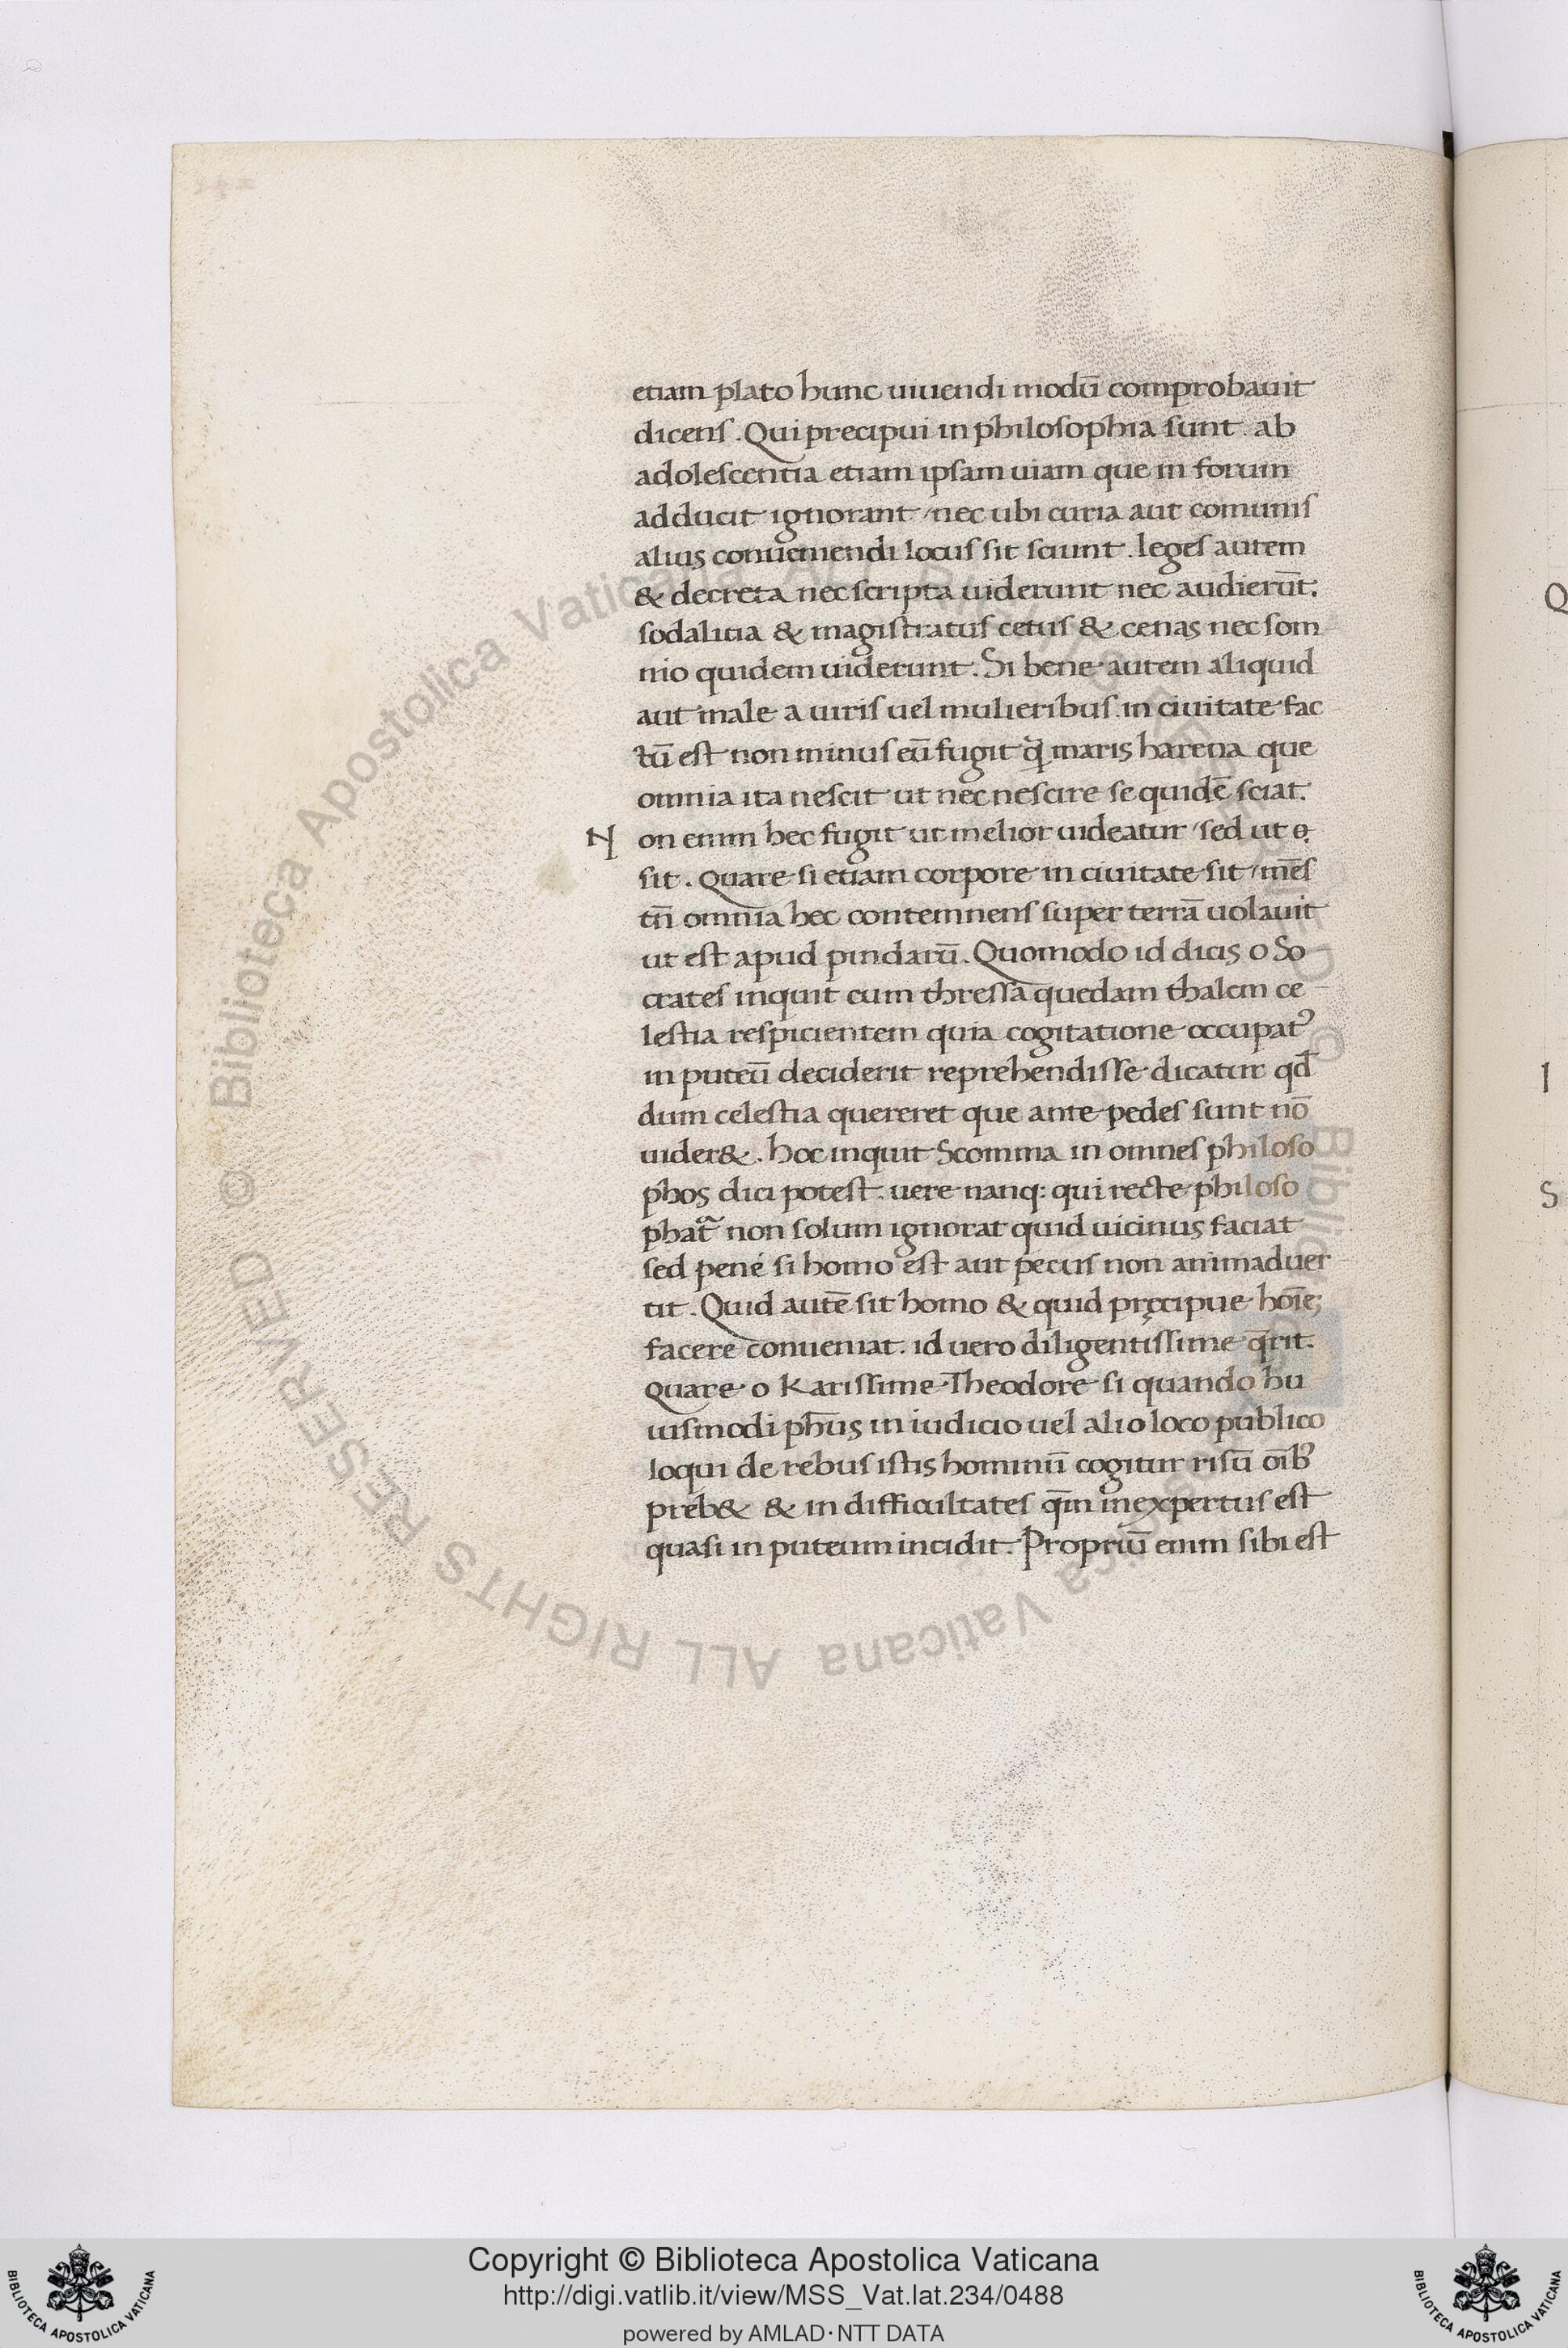 etiam plato hunc uiuendi modū comprobauit
dicens. Qui precipui in philosophia sunt. ab
adolescentia etiam ipsam uiam que in forum
adducit ignorant / nec ubi curia aut comunis
alius conueniendi locus sit sciunt. leges autem
& decreta nec scripta uiderunt nec audierūt.
sodalitia & magistratus cetus & cenas nec som
nio quidem uiderunt. Si bene autem aliquid
aut male a uiris uel mulieribus in ciuitate fac
tū est non minus eū fugit maris harena que
omnia ita nescit ut nec nescire se quidē sciat.
Non enim hec fugit ut melior uideatur / sed ut
sit. Quare si etiam corpore in ciuitate sit / mēs
tn̄ omnia hec contemnens super terrā uolauit
ut est apud pindarū. Quomodo id dicis o So
crates inquit cum thressa quedam thalem ce
lestia respicientem quia cogitatione occupat᾿
in puteū deciderit reprehendisse dicatur qd̄
dum celestia quereret que ante pedes sunt nō
uider&. hoc inquit Scomma in omnes philoso
phos dici potest. uere nanq: qui recte philoso
phat᷑ non solum ignorat quid uicinus faciat
sed pene si homo est aut pecus non animaduer
tit. Quid autē sit homo & quid pręcipue hoīe;
facere conueniat. id uero diligentissime q̄rit.
Quare o Karissime Theodore si quando hu
iusmodi ph̄us in iudicio uel alio loco publico
loqui de rebus istis hominū cogitur risū oīb᾿
preb& & in difficultates qm̄ inexpertus est
quasi in puteum incidit. Propriū enim sibi est
Q
I
S
© Biblioteca Apostolica Vaticana ALL RIGHTS RESERVED
Copyright © Biblioteca Apostolica Vaticana
http://digi.vatlib.it/view/MSS_Vat.lat.234/0488
powered by AMLAD·NTT DATA
BIBLIOTECA APOSTOLICA VATICANA
BIBLIOTECA APOSTOLICA VATICANA